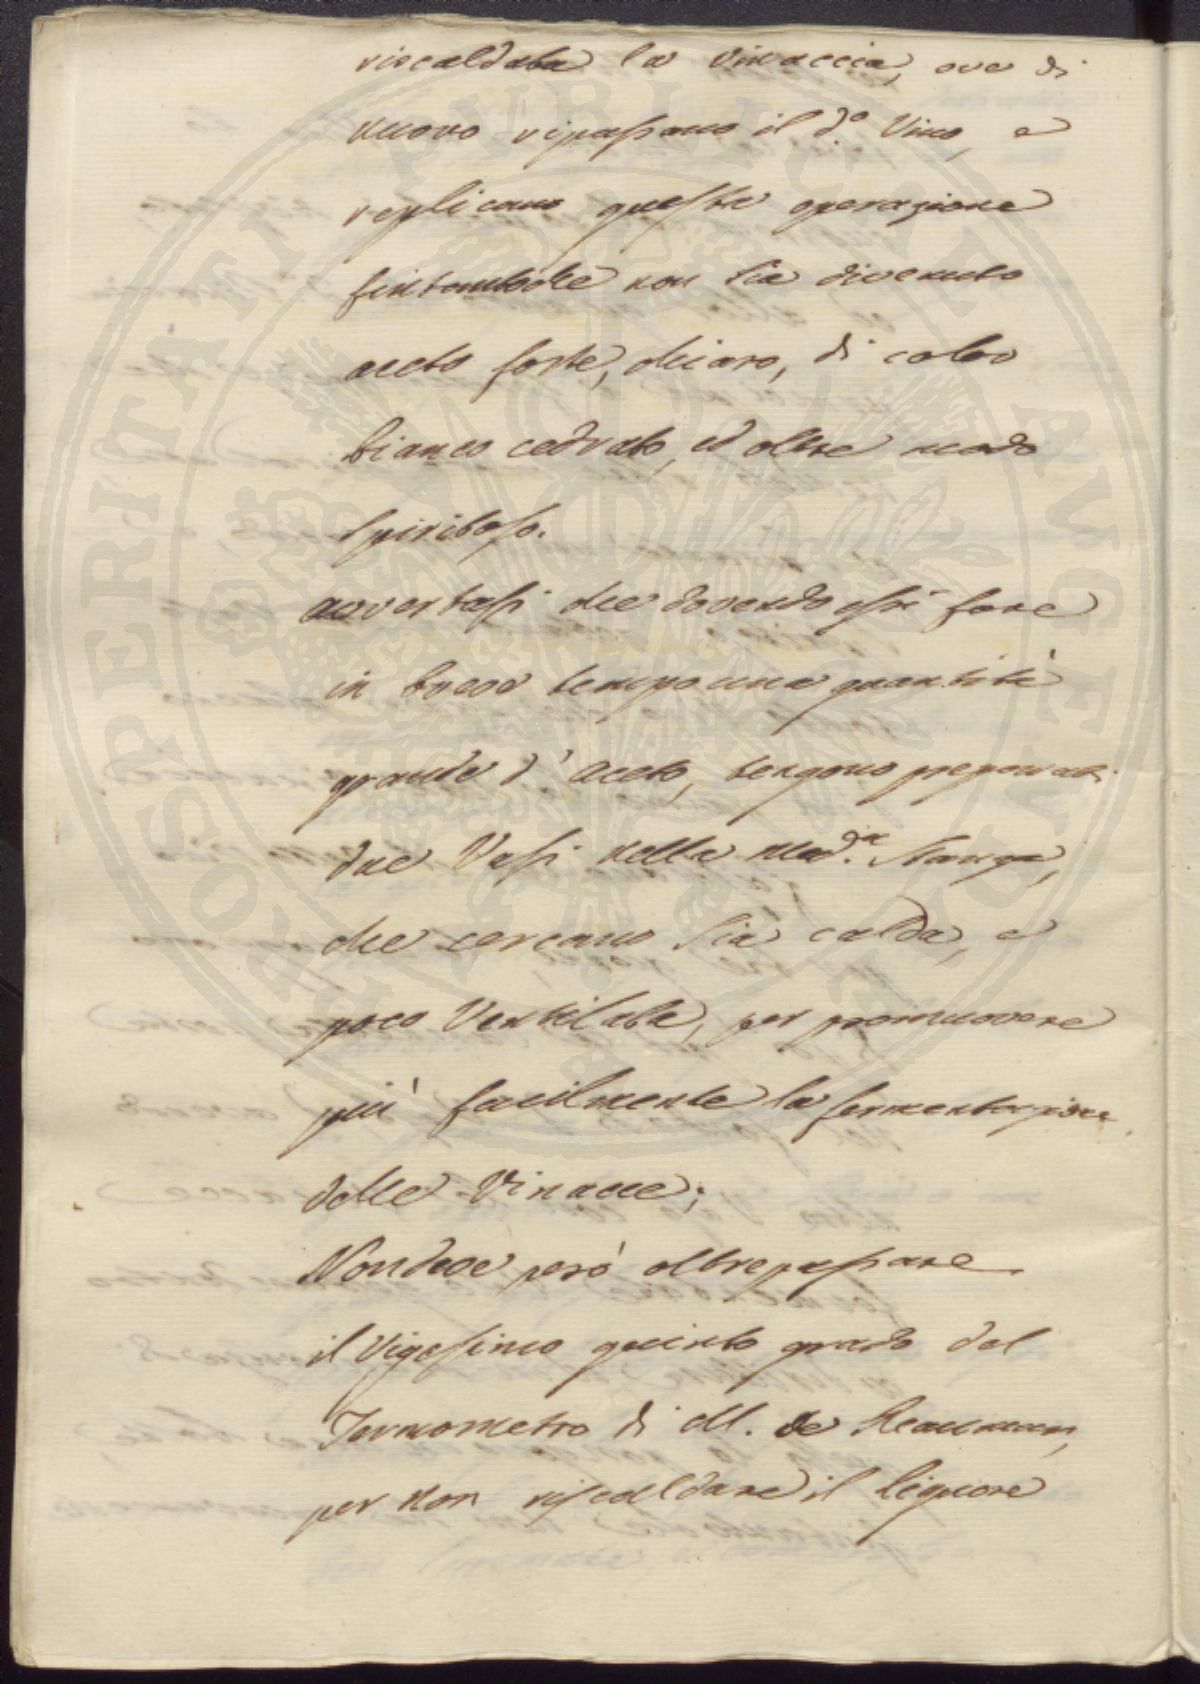 riscaldata la vinaccia, ove di
nuovo ripassano il d.o Vino, e
replicano questa operazione
fintantoche non sia divenuto
aceto forte, chiaro, di color
bianco cedrato, ed oltre modo
spiritoso.
avvertasi che dovendo essi fare
in breve tempo una quantità
grande d'aceto, tengono preparati
due Vasi nella med.a Stanza,
che cercano sia calda, e
poco Ventilata, per promuovere
più facilmente la fermentazione
delle Vinacce;
Non deve però oltrepassare
il Vigesimo quinto grado del
Termometro di M. de Reaumur,
per non riscaldare il liquore
PROSPERITATI PUBLICAE AVGENDAE